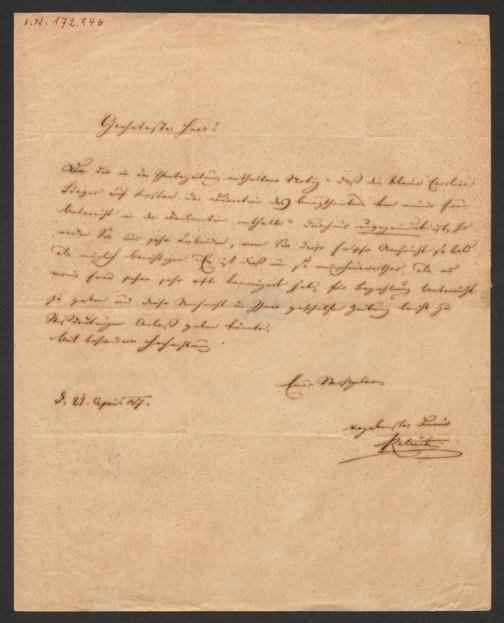 I.N. 172.946
Geehrtester Herr!
Da die in der Theaterzeitung enthaltene Notiz "daß die kleine Caroline
auf Kosten der des Burgtheaters bei meiner Frau
Unterricht in der Declamation erhalte" durchaus ungegründet ist, so
werden Sie uns sehr verbinden, wenn Sie diese falsche Nachricht so bald
als möglich berichtigen. Es ist dieß um so wünschenswerther, als es
meine Frau schon sehr oft verweigert hat, für Bezahlung Unterricht
zu geben und diese Nachricht in Ihrer geschätzten Zeitung leicht zu
Mißdeutungen Anlaß geben könnte.
Mit besonderer Hochachtung
Euer Wohlgeboren
d. 21. April
ergebenster Diener
Rettich